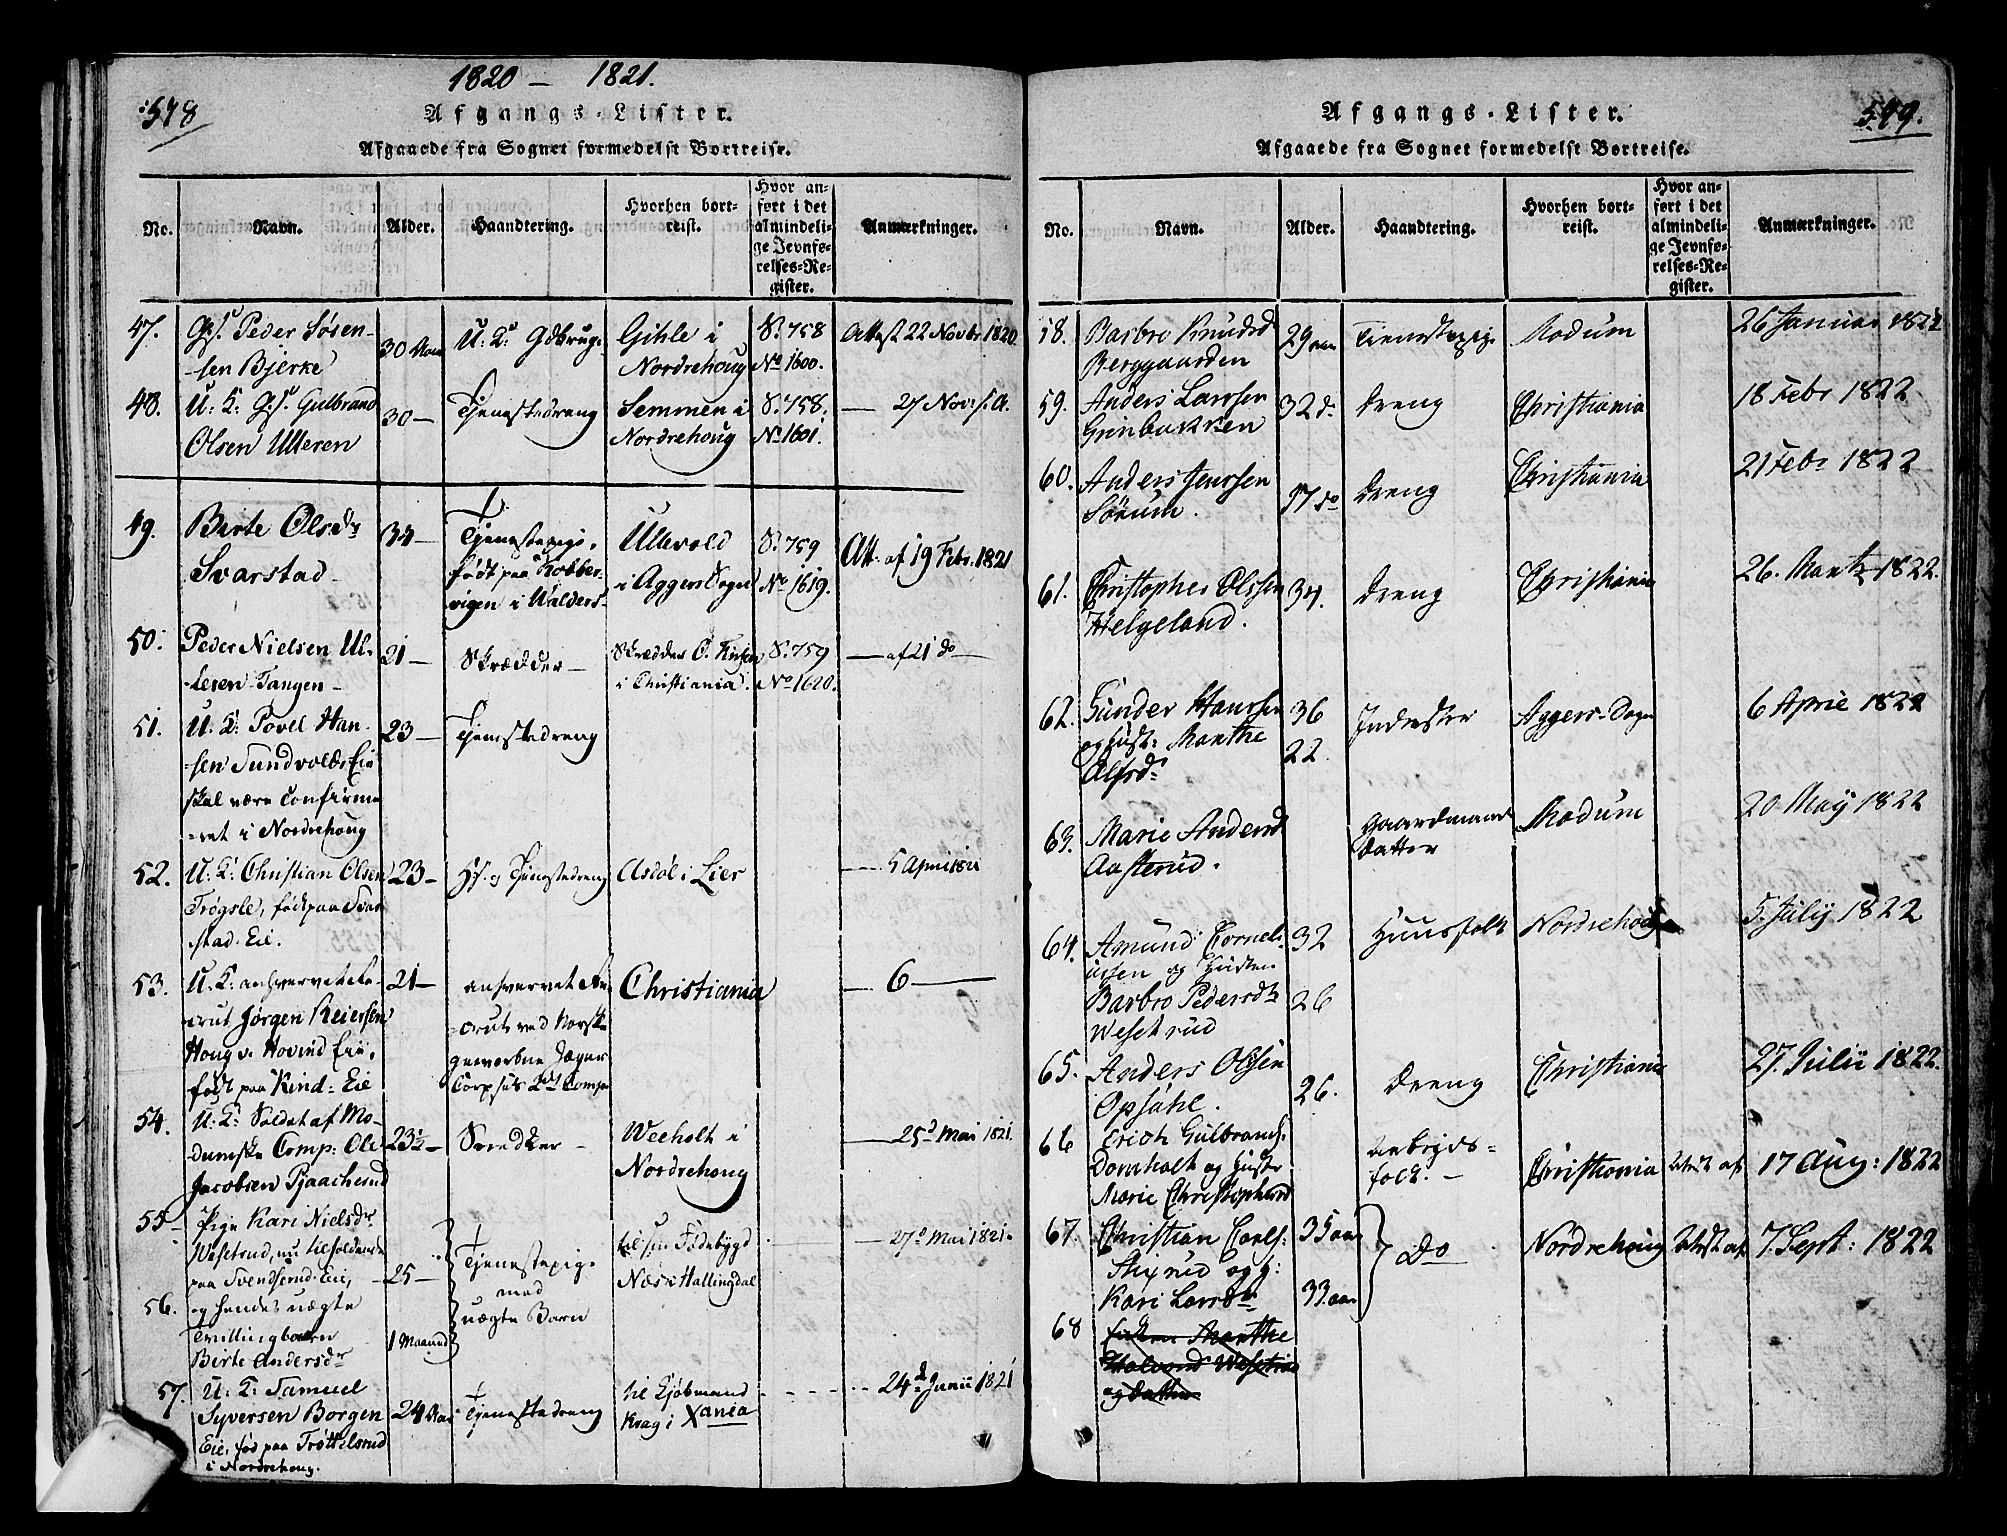 1820 — 1821.
578
Afgangs-Lister.
Afgaaede fra Sognet formedelst Bortreise.
No. Navn. Alder. Haandtering. Hvorhen bortreist. Hvor anført i det almindelige Jevnførelses-Register. Anmærkninger.
47. Peder Sørensen Bjerke 30 Aar U. K. Gihle i Nordrehoug S. 758 No 1600. Attest 22 Novbr. 1820.
48. U. K. Gulbrand Olsen Ulleren 30 — Tjenestedreng Semmen i Nordrehoug S. 758. No 1601. — 27 Nov. s. A.
49. Birte Olsdr Svarstad 34 — Tjenestepige, født paa Kobbervigen i Walders Ullevold i Aggers Sogn S. 759 No 1619. Att. af 19 Febr. 1821
50. Peder Nielsen Ulleren-Tangen — 21 — Skrædder — Skrædder i Christiania. S. 759 No 1620. — af 21 do —
51. U. K. Povel Hansen Sundvolds Eie skal være confirmeret i Nordrehoug 23 — Tjenestedreng
52. U. K. Christian Olsen Trøgsle, født paa Svarstad-Eie. 23 — og Tjenestedreng Asdøl i Lier — 5 April 1821
53. U. K. anhvervet Recrut Jørgen Reiersen Houg v. Hovind Eie, født paa Kind-Eie 21 — anhvervet Recrut ved Norske gevorbne Jæger Corpsets 2det Comp. Christiania — 6 —
54. U. K. Soldat af Modumske Comp: Ole Jacobsen Pjaacherud 23½ — Snedker — Weeholt i Nordrehoug — 25d Mai 1821.
55 — Pige Kari Nielsdr Wesetrud, nu tilholdende paa Svendserud-Eie, — 25 — Tjenestepige med uægte Barn til sin Fødebygd Næs i Hallingdal — 27d Mai 1821.
56. og hendes uægte Tvillingbarn Birte Andersdr 1 Maaned
57. U. K. Samuel Syversen Borgen Eie, fød paa Trøttelsrud i Nordrehoug. 24 Aar Tjenestedreng til Kjøbmand Krag i Xania — 24d Junii 1821
579.
Afgangs-Lister.
Afgaaede fra Sognet formedelst Bortreise.
No. Navn. Alder. Haandtering. Hvorhen bortreist. Hvor anført i det almindelige Jevnførelses-Register. Anmærkninger.
58. Barbro Knudsd Berggaarden 29 aar Tienestepige Modum 26 Januar 1822
59. Anders Larssen Grinbakken 32 do Dreng Christiania 18 Febr 1822
60. Anders Jenssen Sörum. 37 do Dreng Christiania 21 Febr 1822
61. Christopher Olssen Helgeland. 34. Dreng Christiania 26. Martz 1822.
62. Gunder Hanssen og Hust: Marthe Alfsdr 36 22 Inderster Aggers-Sogn 6 April 1822
63. Marie Andersd Aasterud. Gaardmands datter Modum 20 May 1822
64. Amund Corneliussen og Hustru Barbro Pedersdtr Wesetrud 32 26 Huusfolk Nordrehoug 5. July 1822
65. Anders Olsen Opsahl. 26. Dreng Christiania 27. Julii 1822.
66 Erich Gulbrands. Domholt og Hustr Marie Christophersd Arbeids-folk. — Christiania Attest af 17 Aug: 1822
67. Christian Carls: Stixrud og g: Kari Larsdtr 35 aar 33 aar Do Nordrehoug Attest af 7. Sept: 1822
68 Enken Marthe Halvorsd Wesetrud og Datter